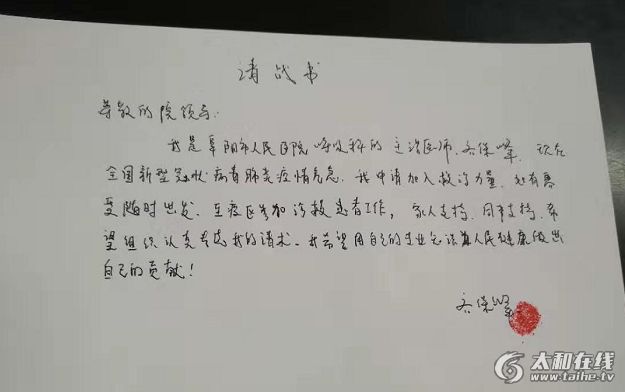 请战书
尊敬的院领导:
我是阜阳市人民医院呼吸科的主治医师,齐保峰,现在
全国新型冠状病毒肺炎疫情危急,我申请加入救治力量,如有需
要随时出发,至疫区参加诊救患者工作,家人支持,同事支持,希
望组织认真考虑我的请求。我希望用自己的专业知识为人民健康做出
自己的贡献!
齐保峰
太和在线
www.taihe.tv